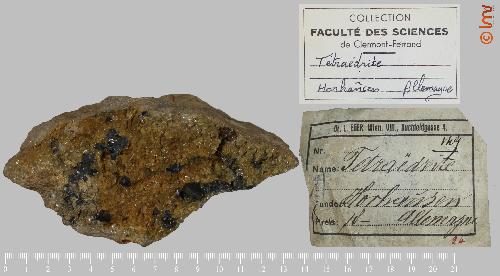 COLLECTION
FACULTÉ DES SCIENCES
de Clermont-Ferrand
Tétraédrite
Horhausen Allemagne
© lmv
Dr. L. EGER Wien, VIII., Buchfeldgasse
Nr.
Name: Tetraëdrite
Fundort Horhausen
Preis Allemagne
0 1 2 3 4 5 6 7 8 9 10 11 12 13 14 15 16 17 18 19 20 21